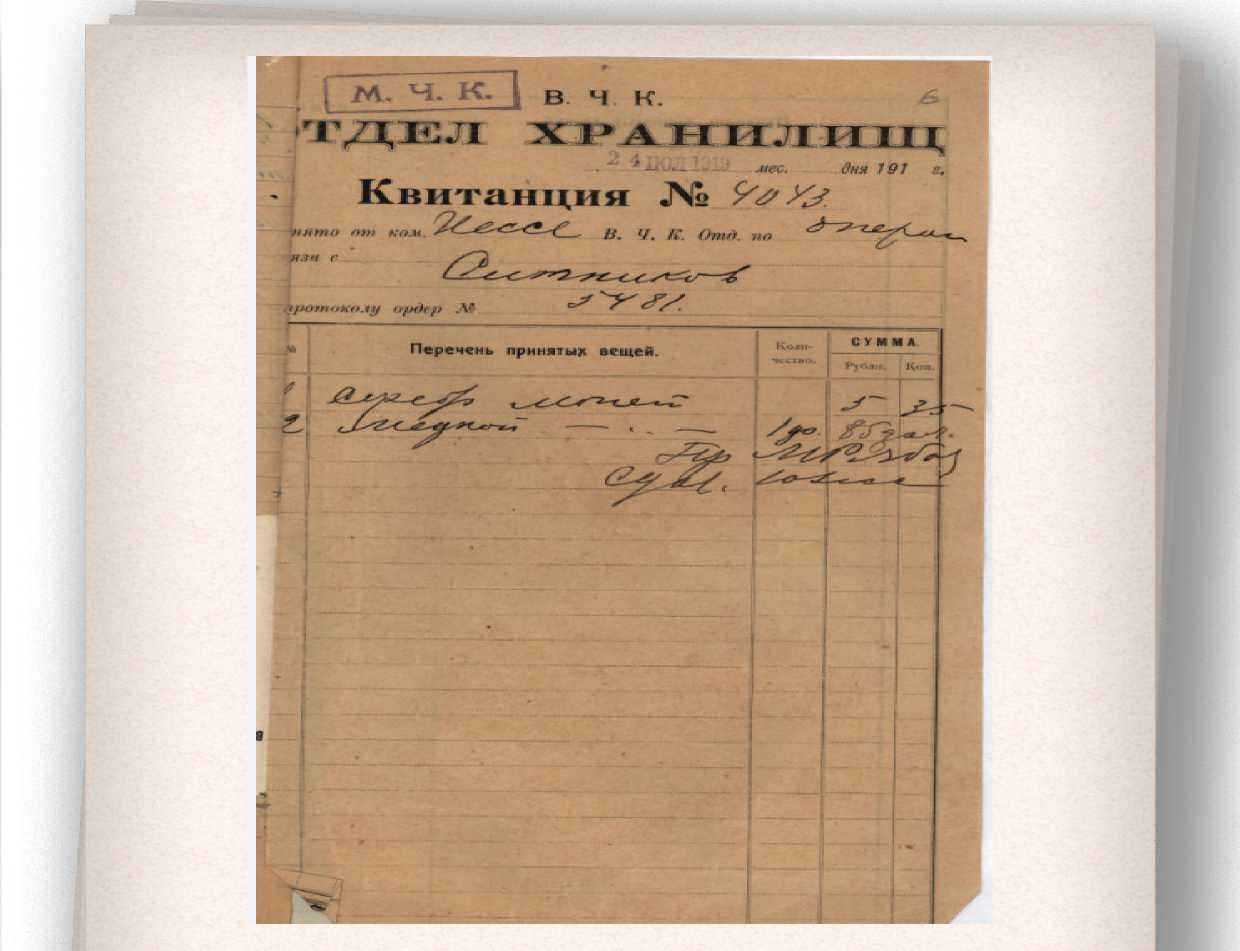 М. Ч. К. В. Ч. К. 6
ТДЕЛ ХРАНИЛИЩ
24 ИЮЛ 1919 мес. дня 191 г.
Квитанция № 4043.
нято от ком. Пессе В. Ч. К. Отд. по операт
язи с
Ситников
протоколу ордер № 5481.
№ Перечень принятых вещей. Коли-чество. СУММА.
Рубли. Коп.
серебр монет 5 35
2 Медной — „ —